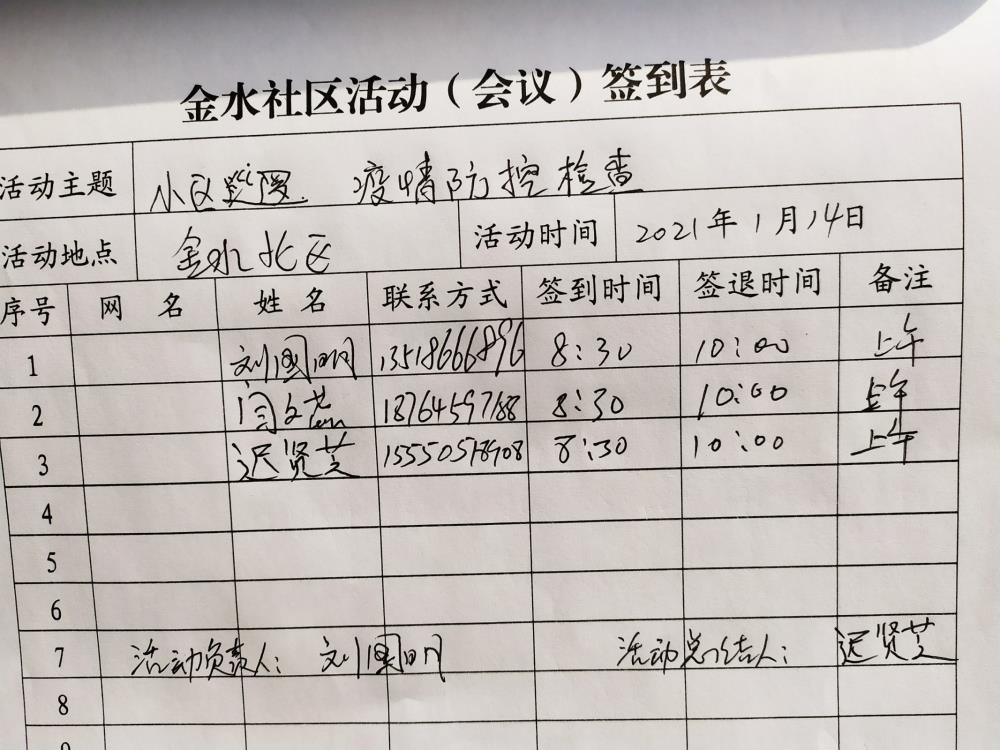 金水社区活动（会议）签到表
活动主题 小区巡逻. 疫情防控检查
活动地点 金水北区 活动时间 2021年1月14日
序号 网 名 姓 名 联系方式 签到时间 签退时间 备注
1 刘国明 13518666896 8:30 10:00 上午
2 闫文 18764597188 8:30 10:00 上午
3 迟贤芝 15550578908 8:30 10:00 上午
4
5
6
7 活动负责人: 刘国明 活动总结人: 迟贤芝
8
9